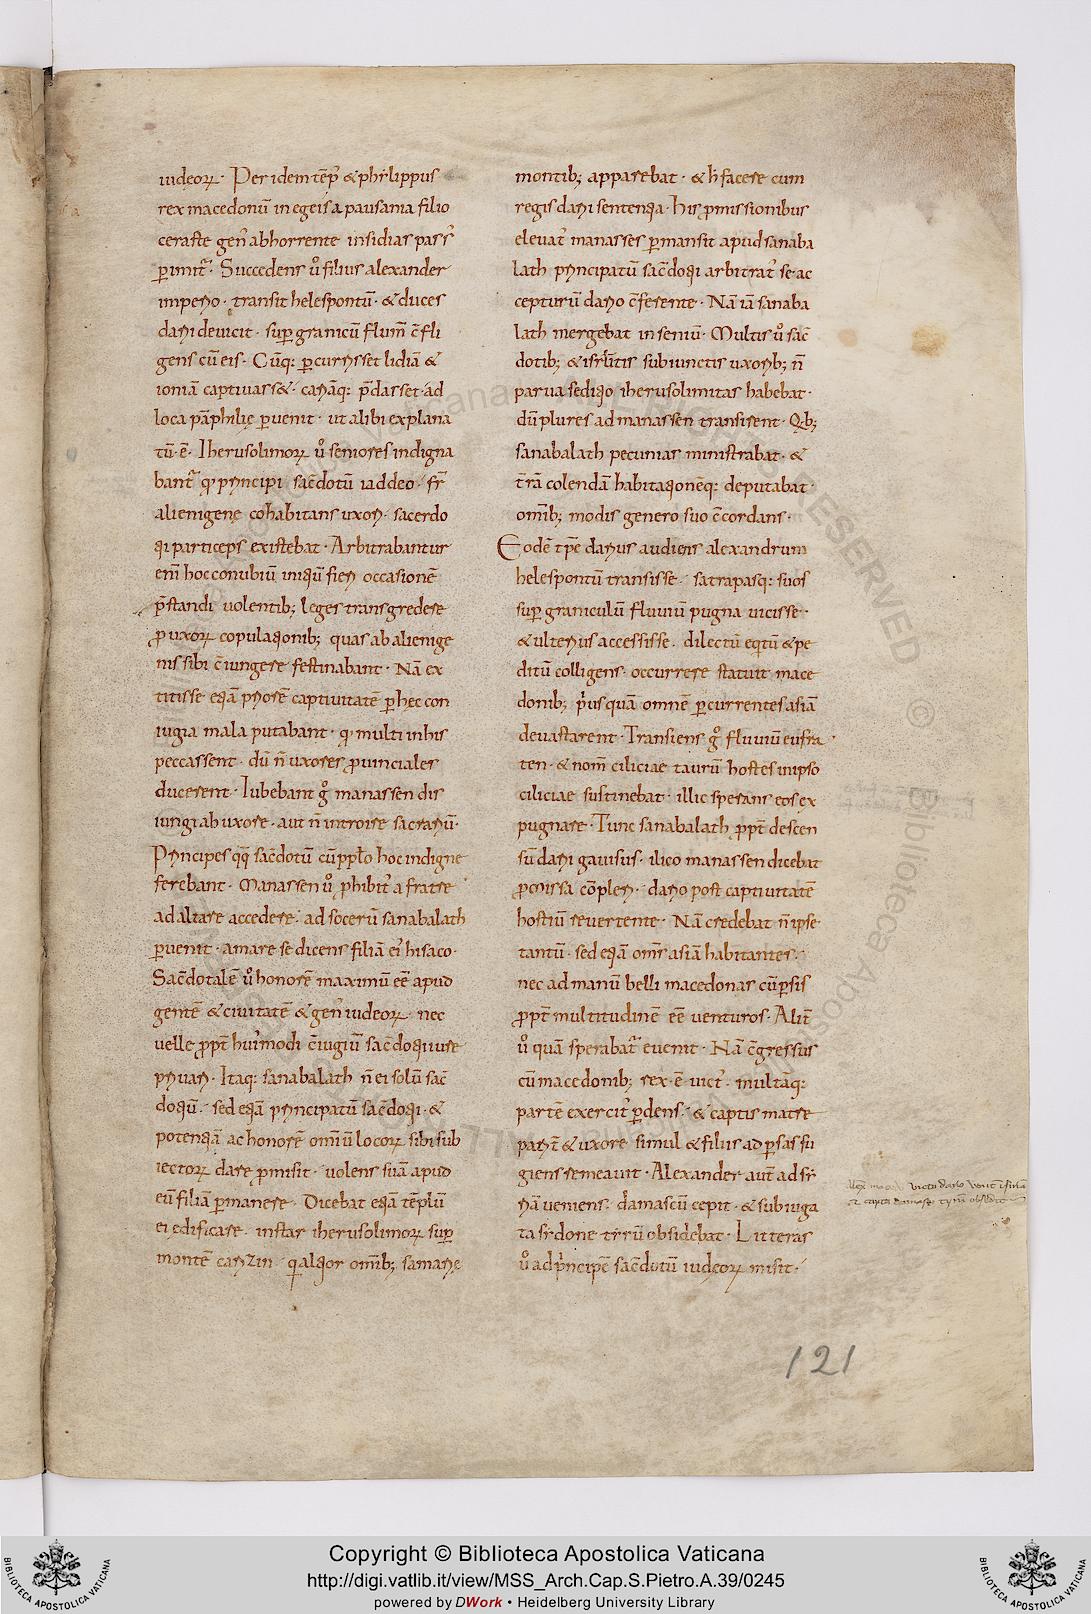 iudeoꝝ· Per idem tēp̄ & philippus
rex macedonū in egeis a pausania filio
ceraste gen̄ abhorrente insidias pass᾿
ꝑimit᾿· Succedens ů filius alexander
imperio· transit helespontū· & duces
darii devicit· suꝑ granicū flum̄ c̄fli
gens cū eis· Cūq; ꝑcurrisset lidiā &
ioniā captivass&· cariāq; p̄dasset· ad
loca pāphilię ꝑvenit· ut alibi explana
tū· ē· Iherusolimoꝝ ů seniores indigna
bant᾿ qđ principi sac̄dotū iaddeo· fr̄
alienigenę cohabitans uxori· sacerdo
tii particeps existebat· Arbitrabantur
eni̅ hoc conubiū iniquū fieri occasionē
p̄standi volentib; leges transgredere
ꝓ uxoꝝ copulationib; quas ab alienige
nis sibi c̄iungere festinabant· Nā ex
titisse etiā priorē captivitatē ꝑ hęc con
iugia mala putabant· qđ multi in his
peccassent· dū n̄ uxores ꝓvinciales
ducerent· Iubebant g̊ manassen dis
iungi ab uxore· aut n̄ introire sacrariū·
Principes qq̨ sac̄dotū cū pplo hoc indigne
ferebant· Manassen ů ꝓhibit᾿ a fratre
ad altare accedere· ad socerū sanabalath
ꝑvenit· amare se dicens filiā ei᾿ hisaco·
Sac̄dotalē ů honorē maximū eē apud
gentē & civitatē & gen᾿ iudeoꝝ· nec
velle ꝓpt̄ hui᾿modi c̄iugiū sac̄dotii iure
privari· Itaq; sanabalath n̄ ei solū sac̄
dotiū· sed etiā principatū sac̄dotii· &
potentiā ac honorē omniū locoꝝ sibi sub
iectoꝝ dare ꝓmisit· volens suā apud
eū filiā ꝑmanere· Dicebat etiā tēplū
ei ędificare· instar iherusolimoꝝ suꝑ
montē carizin· qui altior omīb; samarię
montib; apparebat· & h̄ facere cum
regis darii sententia· His ꝓmissionibus
elevat᾿ manasses ꝑmansit apud sanaba
lath principatū sac̄dotii arbitrat᾿ se ac
cepturū dario c̄ferente· Nā iā sanaba
lath mergebat in seniū· Multis ů sac̄
dotib; & isrl̄itis subiunctis uxorib; n̄
parva seditio iherusolimitas habebat·
dū plures ad manassen transirent· Qb;
sanabalath pecunias ministrabat· &
t̄rā colendā habitationēq; deputabat·
omīb; modis genero suo c̄cordans·
Eodē tp̄e darius audiens alexandrum
helespontū transisse· satrapasq; suos
suꝑ graniculū fluviū pugna vicisse·
& ulterius accessisse· dilectū eqitū & pe
ditū colligens· occurrere statuit mace
donib; p᾿us quā omnē ꝑcurrentes asiā
devastarent· Transiens g̊ fluviū eufra
ten· & nom̄ ciliciae taurū hostes in ipso
ciliciae sustinebat· illic sperans eos ex
pugnare· Tunc sanabalath ꝓpt̄ descen
sū darii gavisus· ilico manassen dicebat
ꝓmissa cōpleri· dario post captivitatē
hostiū revertente· Nā credebat n̄ ipse
tantū· sed etiā om̄s asiā habitantes·
nec ad manū belli macedonas cū ꝑsis
ꝓpt̄ multitudinē eē venturos· Alit̄
ů quā sperabat᾿ evenit· Nā c̄gressus
cū macedonib; rex· ē vict᾿· multāq;
partē exercit᾿ ꝑdens· & captis matre
parit̄ & uxore simul & filiis ad ꝑsas fu
giens remeavit· Alexander aut̄ ad si
riā veniens· damascū cepit· & subiuga
ta sidone tirū obsidebat· Litteras
ů ad p᾿ncipē sac̄dotū iudeoꝝ misit·
victo dario venit ī siriā
& capta damasco tyrū obsedit
121
Copyright © Biblioteca Apostolica Vaticana
http://digi.vatlib.it/view/MSS_Arch.Cap.S.Pietro.A.39/0245
powered by DWork • Heidelberg University Library